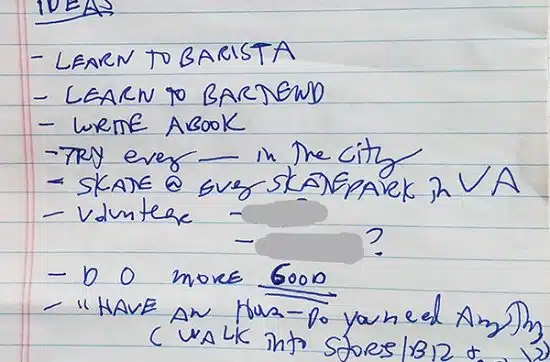 IDEAS
- LEARN TO BARISTA
- LEARN TO BARTEND
- WRITE A BOOK
- TRY every — in The City
- SKATE @ EVERY SKATEPARK in VA
- Volunteer -
- ?
- DO MORE GOOD
- "HAVE AN Hour - Do you need Anything
(WALK into stores/BIZ